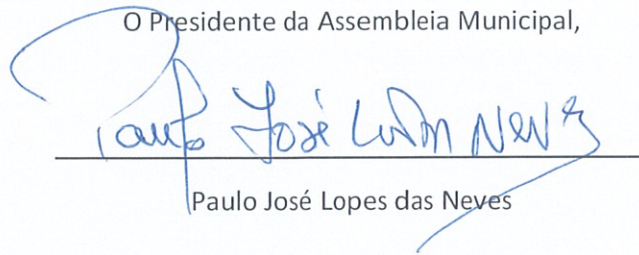 O Presidente da Assembleia Municipal,
Paulo José Neves
Paulo José Lopes das Neves